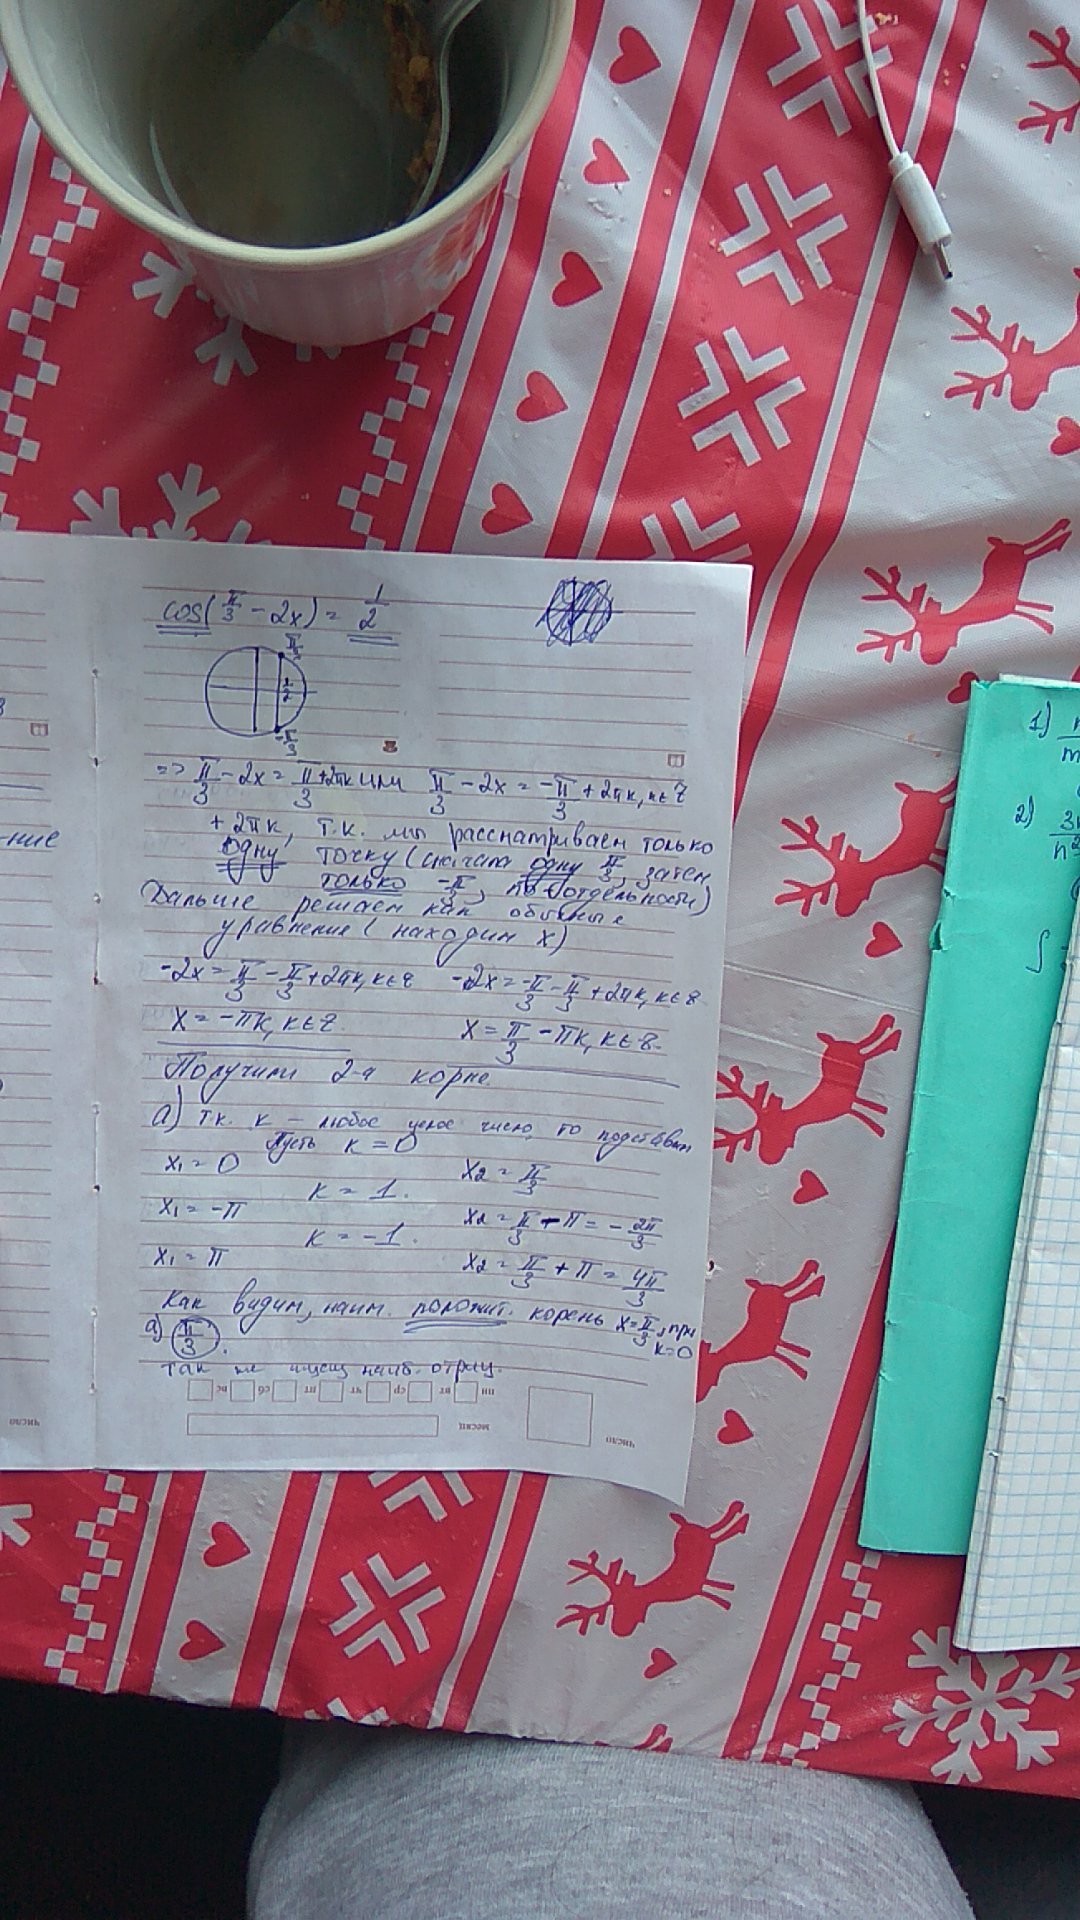 cos(π/3 - 2x) = 1/2
π/3
1/2
-π/3
=> π/3 - 2x = π/3 + 2πk или π/3 - 2x = -π/3 + 2πk, k∈Z
+ 2πk, т.к. мы рассматриваем только
одну точку (сначала одну π/3, затем
только -π/3, по отдельности)
Дальше решаем как обычные
уравнение (находим x)
-2x = π/3 - π/3 + 2πk, k∈Z -2x = -π/3 - π/3 + 2πk, k∈Z
x = -πk, k∈Z x = π/3 - πk, k∈Z
Получили 2-а корня.
а) т.к. k - любое целое число, то подставим
Пусть k = 0
x₁ = 0 x₂ = π/3
k = 1.
x₁ = -π x₂ = π/3 - π = -2π/3
k = -1.
x₁ = π x₂ = π/3 + π = 4π/3
Как видим, наим. положит. корень x = π/3, при k=0
а) π/3.
так же ищещ наиб. отриц.
пн вт ср чт пт сб вс
месяц
число
-ние
число
1)
2)
∫